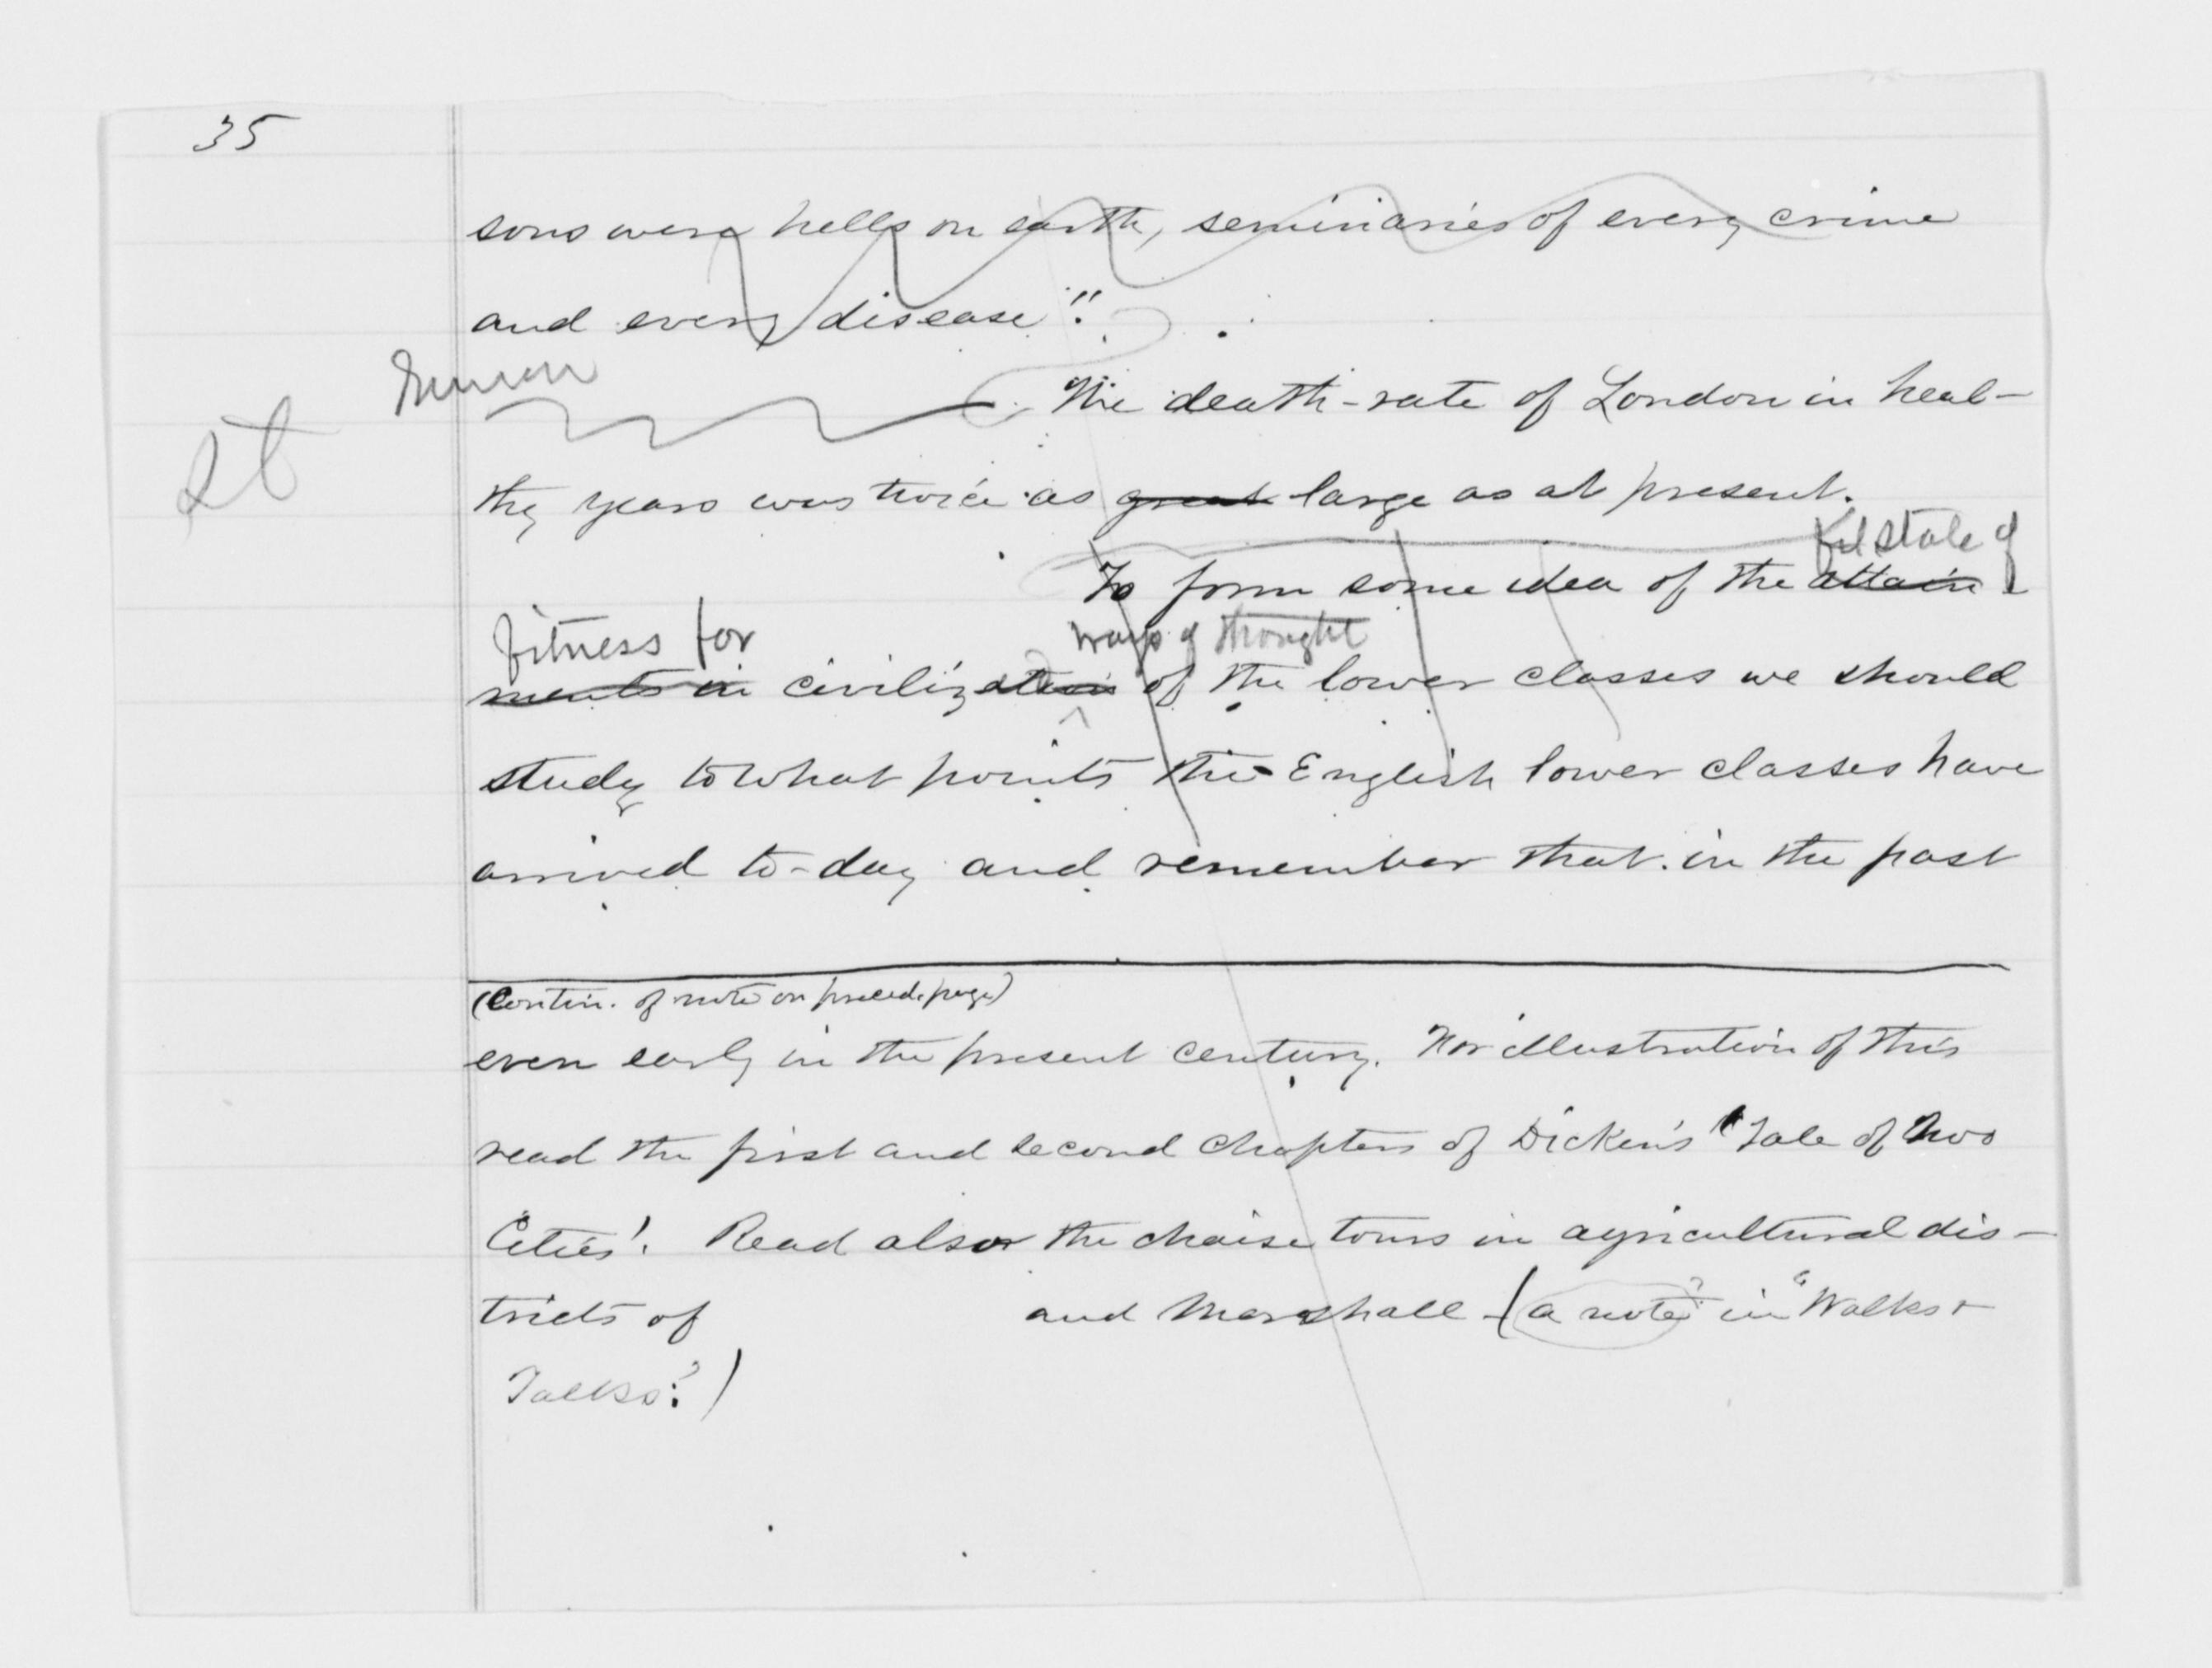 35
sons were hells on earth, seminaries of every crime
and every disease".
The death-rate of London in heal-
thy years was twice as great large as at present.
state of
To form some idea of the attain
fitness for ways of thought
ments in civilization of the lower classes we should
study to what points the English lower classes have
arrived to-day and remember that in the past
(Contin. of note on preced. page)
even early in the present century. For illustration of this
read the first and second chapters of Dicken's 'Tale of Two
Cities'. Read also the chaise tours in agricultural dis-
tricts of and Marshall (a note in "Walks +
Talks".)